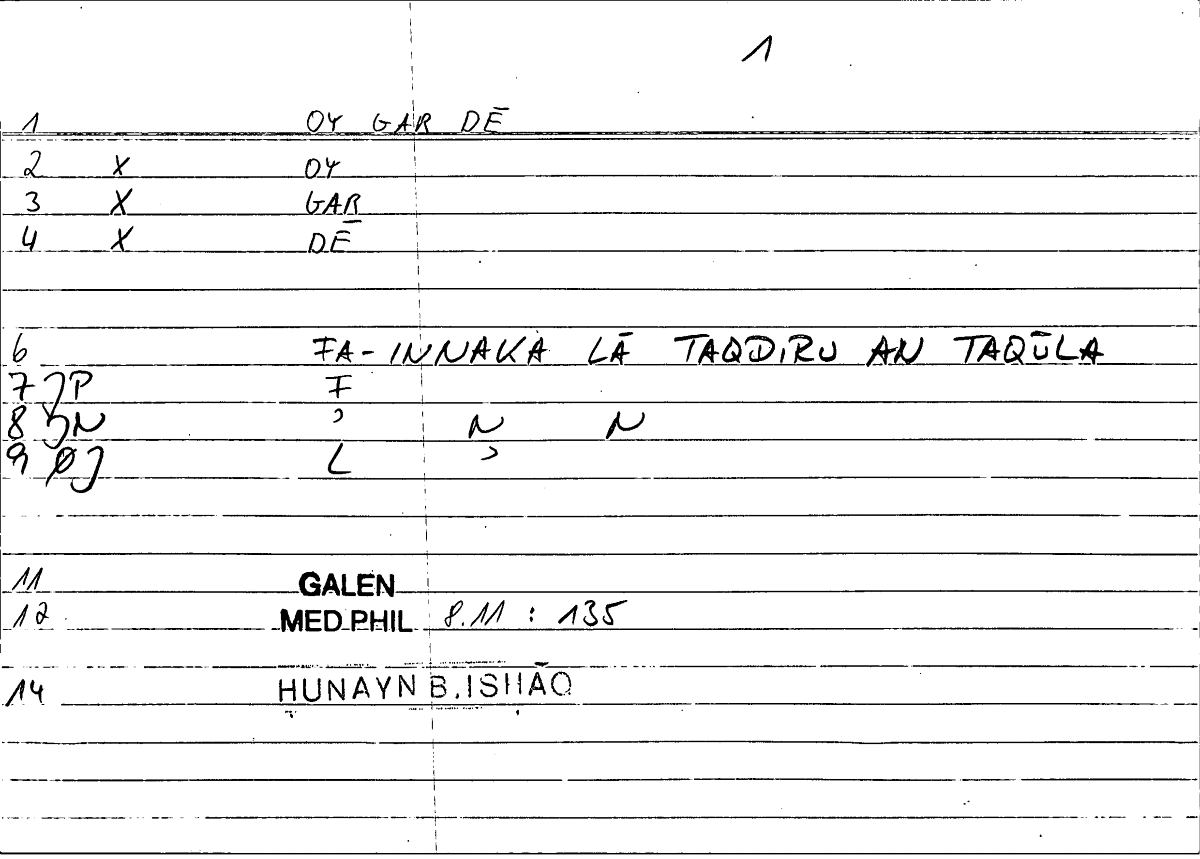 1
1 OY GAR DĒ
2 X OY
3 X GAR
4 X DĒ
6 FA-INNAKA LĀ TAQDIRU AN TAQŪLA
7 JP F
8 JN ʾ N N
9 ØJ L ʾ
11 GALEN
12 MED PHIL 8.11 : 135
14 HUNAYN B. ISḤĀQ